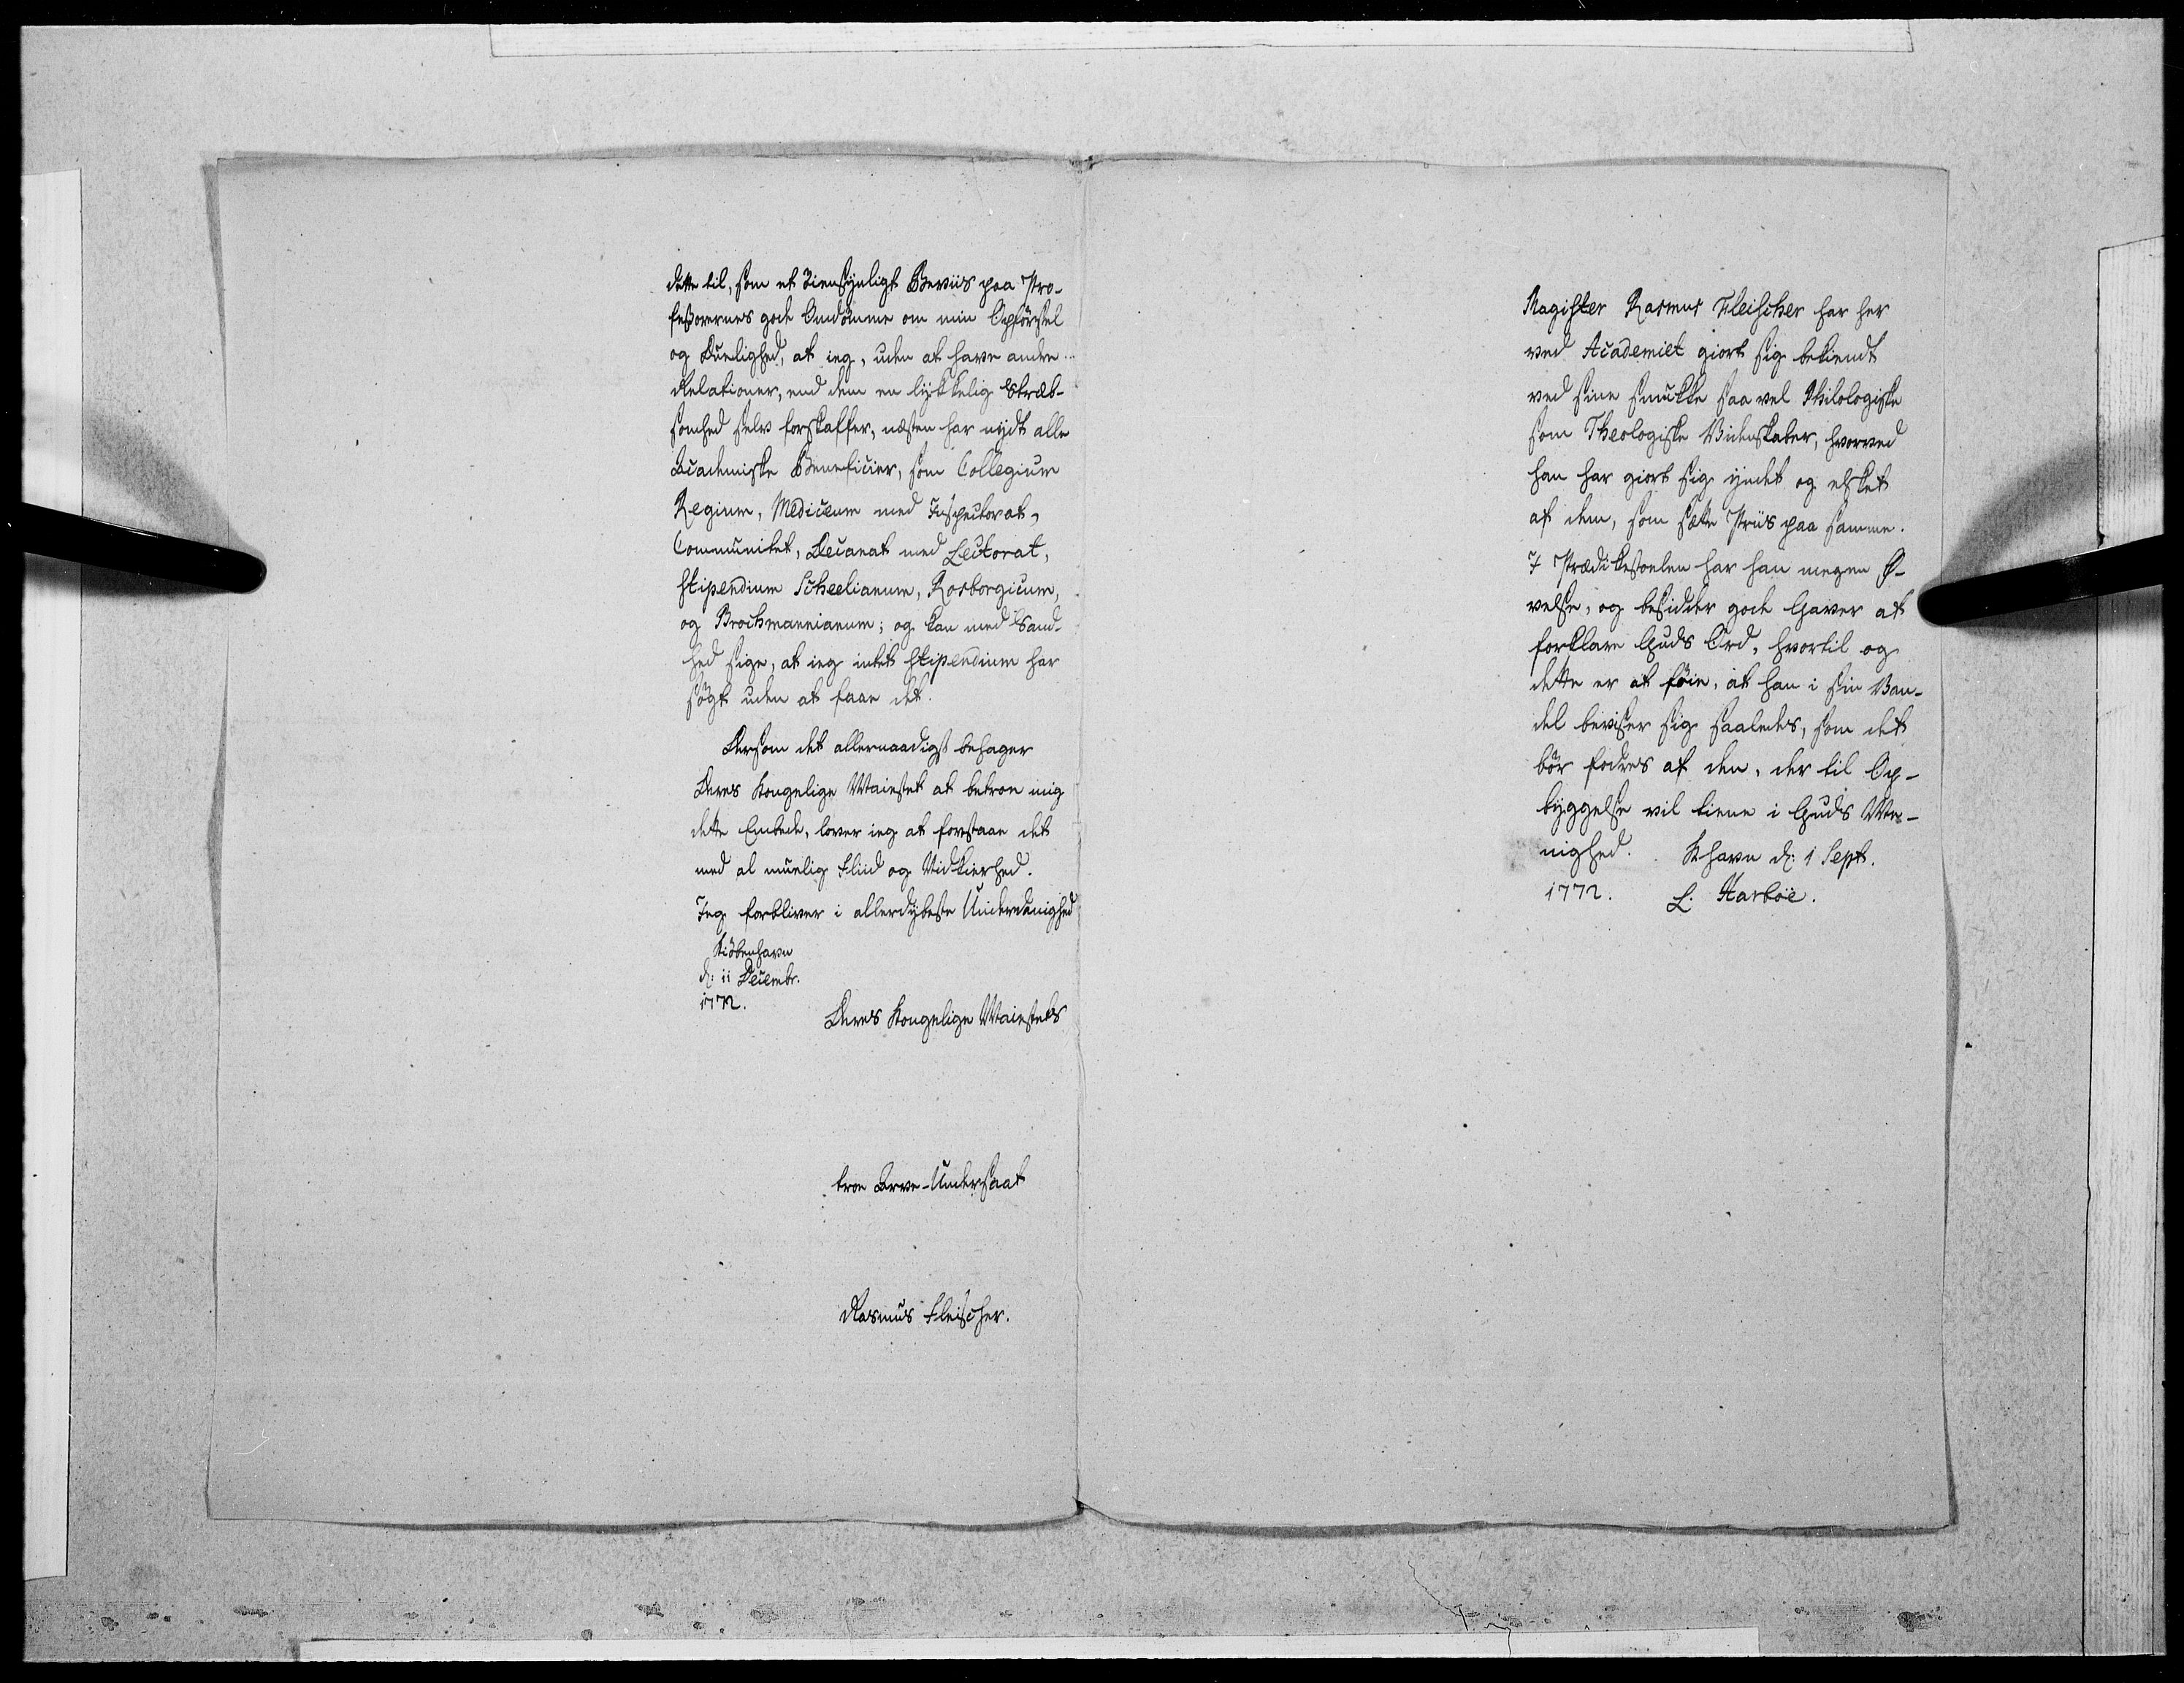 dette til, som et øiensynligt Beviis paa Pro-
feßorernes gode Omdömme om min Opförsel
og Duelighed, at ieg, uden at have andre
Relationer, end dem en lykkelig Stræb-
somhed selv forskaffer, næsten har nydt alle
Academiske Beneficier, som Collegium
Regium, Mediceum med Inspectorat,
Communitet, Decanat med Lectorat,
Stipendium Scheelianum, Rosborgicum,
og Brochmannianum; og kan med Sand-
hed sige, at ieg intet Stipendium har
sögt uden at faae det.
Dersom det allernaadigst behager
Deres Kongelige Maiestet at betroe mig
dette Embede, lover ieg at forestaae det
med al muelig Fliid og Nidkierhed.
Jeg forbliver i allerdybeste Underdanighed
Kiöbenhavn
d: 11 Decembr.
1772.
Deres Kongelige Maiestets
troe Arve-Undersaat
Rasmus Fleischer.
Magister Rasmus Fleischer har her
ved Academiet giort sig bekiendt
ved sine smukke saa vel Philologiske
som Theologiske Videnskaber, hvorved
han har giort sig yndet og elsket
af dem, som sætte Priis paa samme.
I Prædikestoelen har han megen Ø-
velse, og besidder gode Gaver at
forklare Guds Ord, hvortil og
dette er at föie, at han i sin Van-
del beviser sig saaledes, som det
bör fodres af den, der til Op-
byggelse vil tiene i Guds Me-
nighed. Khavn d: 1 Sept.
1772. L. Harböe.